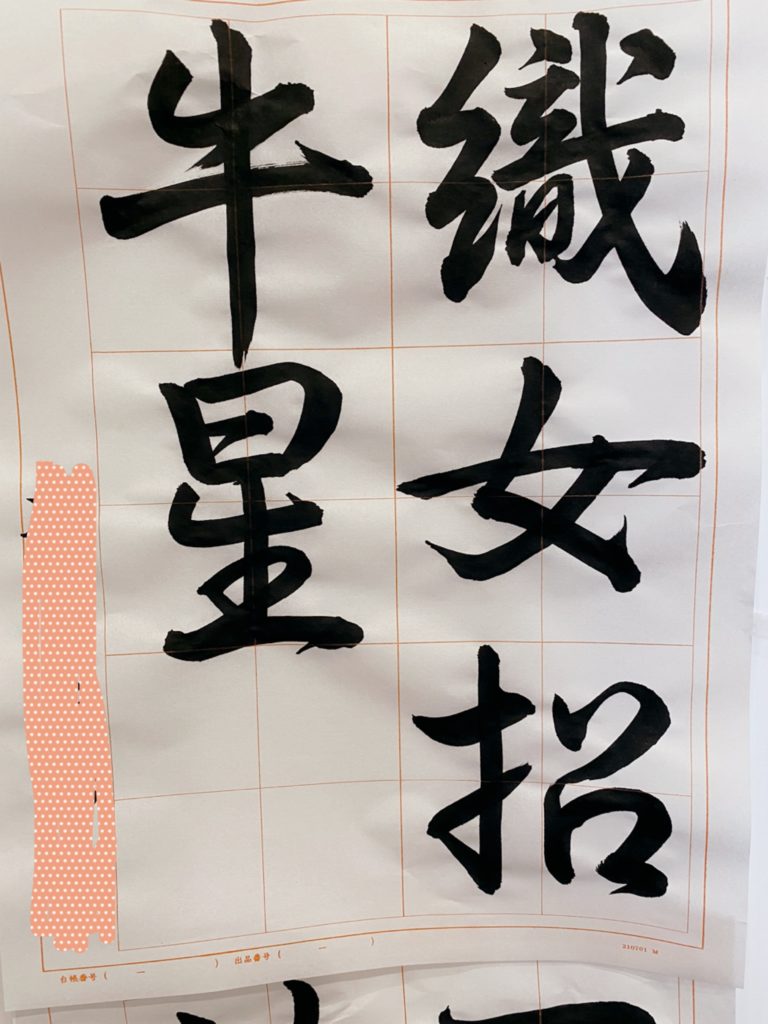 織女招
牛星
台帳番号（　ー　）　出品番号（　ー　）
210701 M